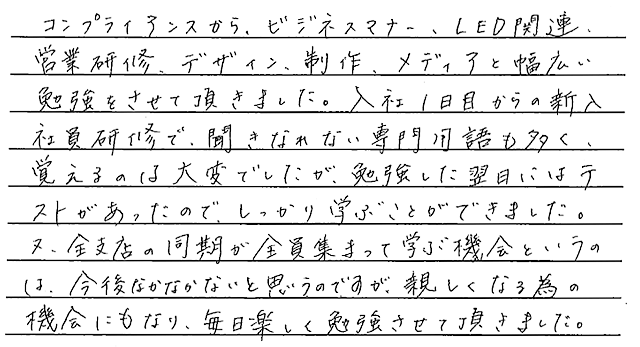 コンプライアンスから、ビジネスマナー、LED関連、
営業研修、デザイン、制作、メディアと幅広い
勉強をさせて頂きました。入社1日目からの新入
社員研修で、聞きなれない専門用語も多く、
覚えるのは大変でしたが、勉強した翌日にはテ
ストがあったので、しっかり学ぶことができました。
又、全支店の同期が全員集まって学ぶ機会というの
は、今後なかなかないと思うのですが、親しくなる為の
機会にもなり、毎日楽しく勉強させて頂きました。